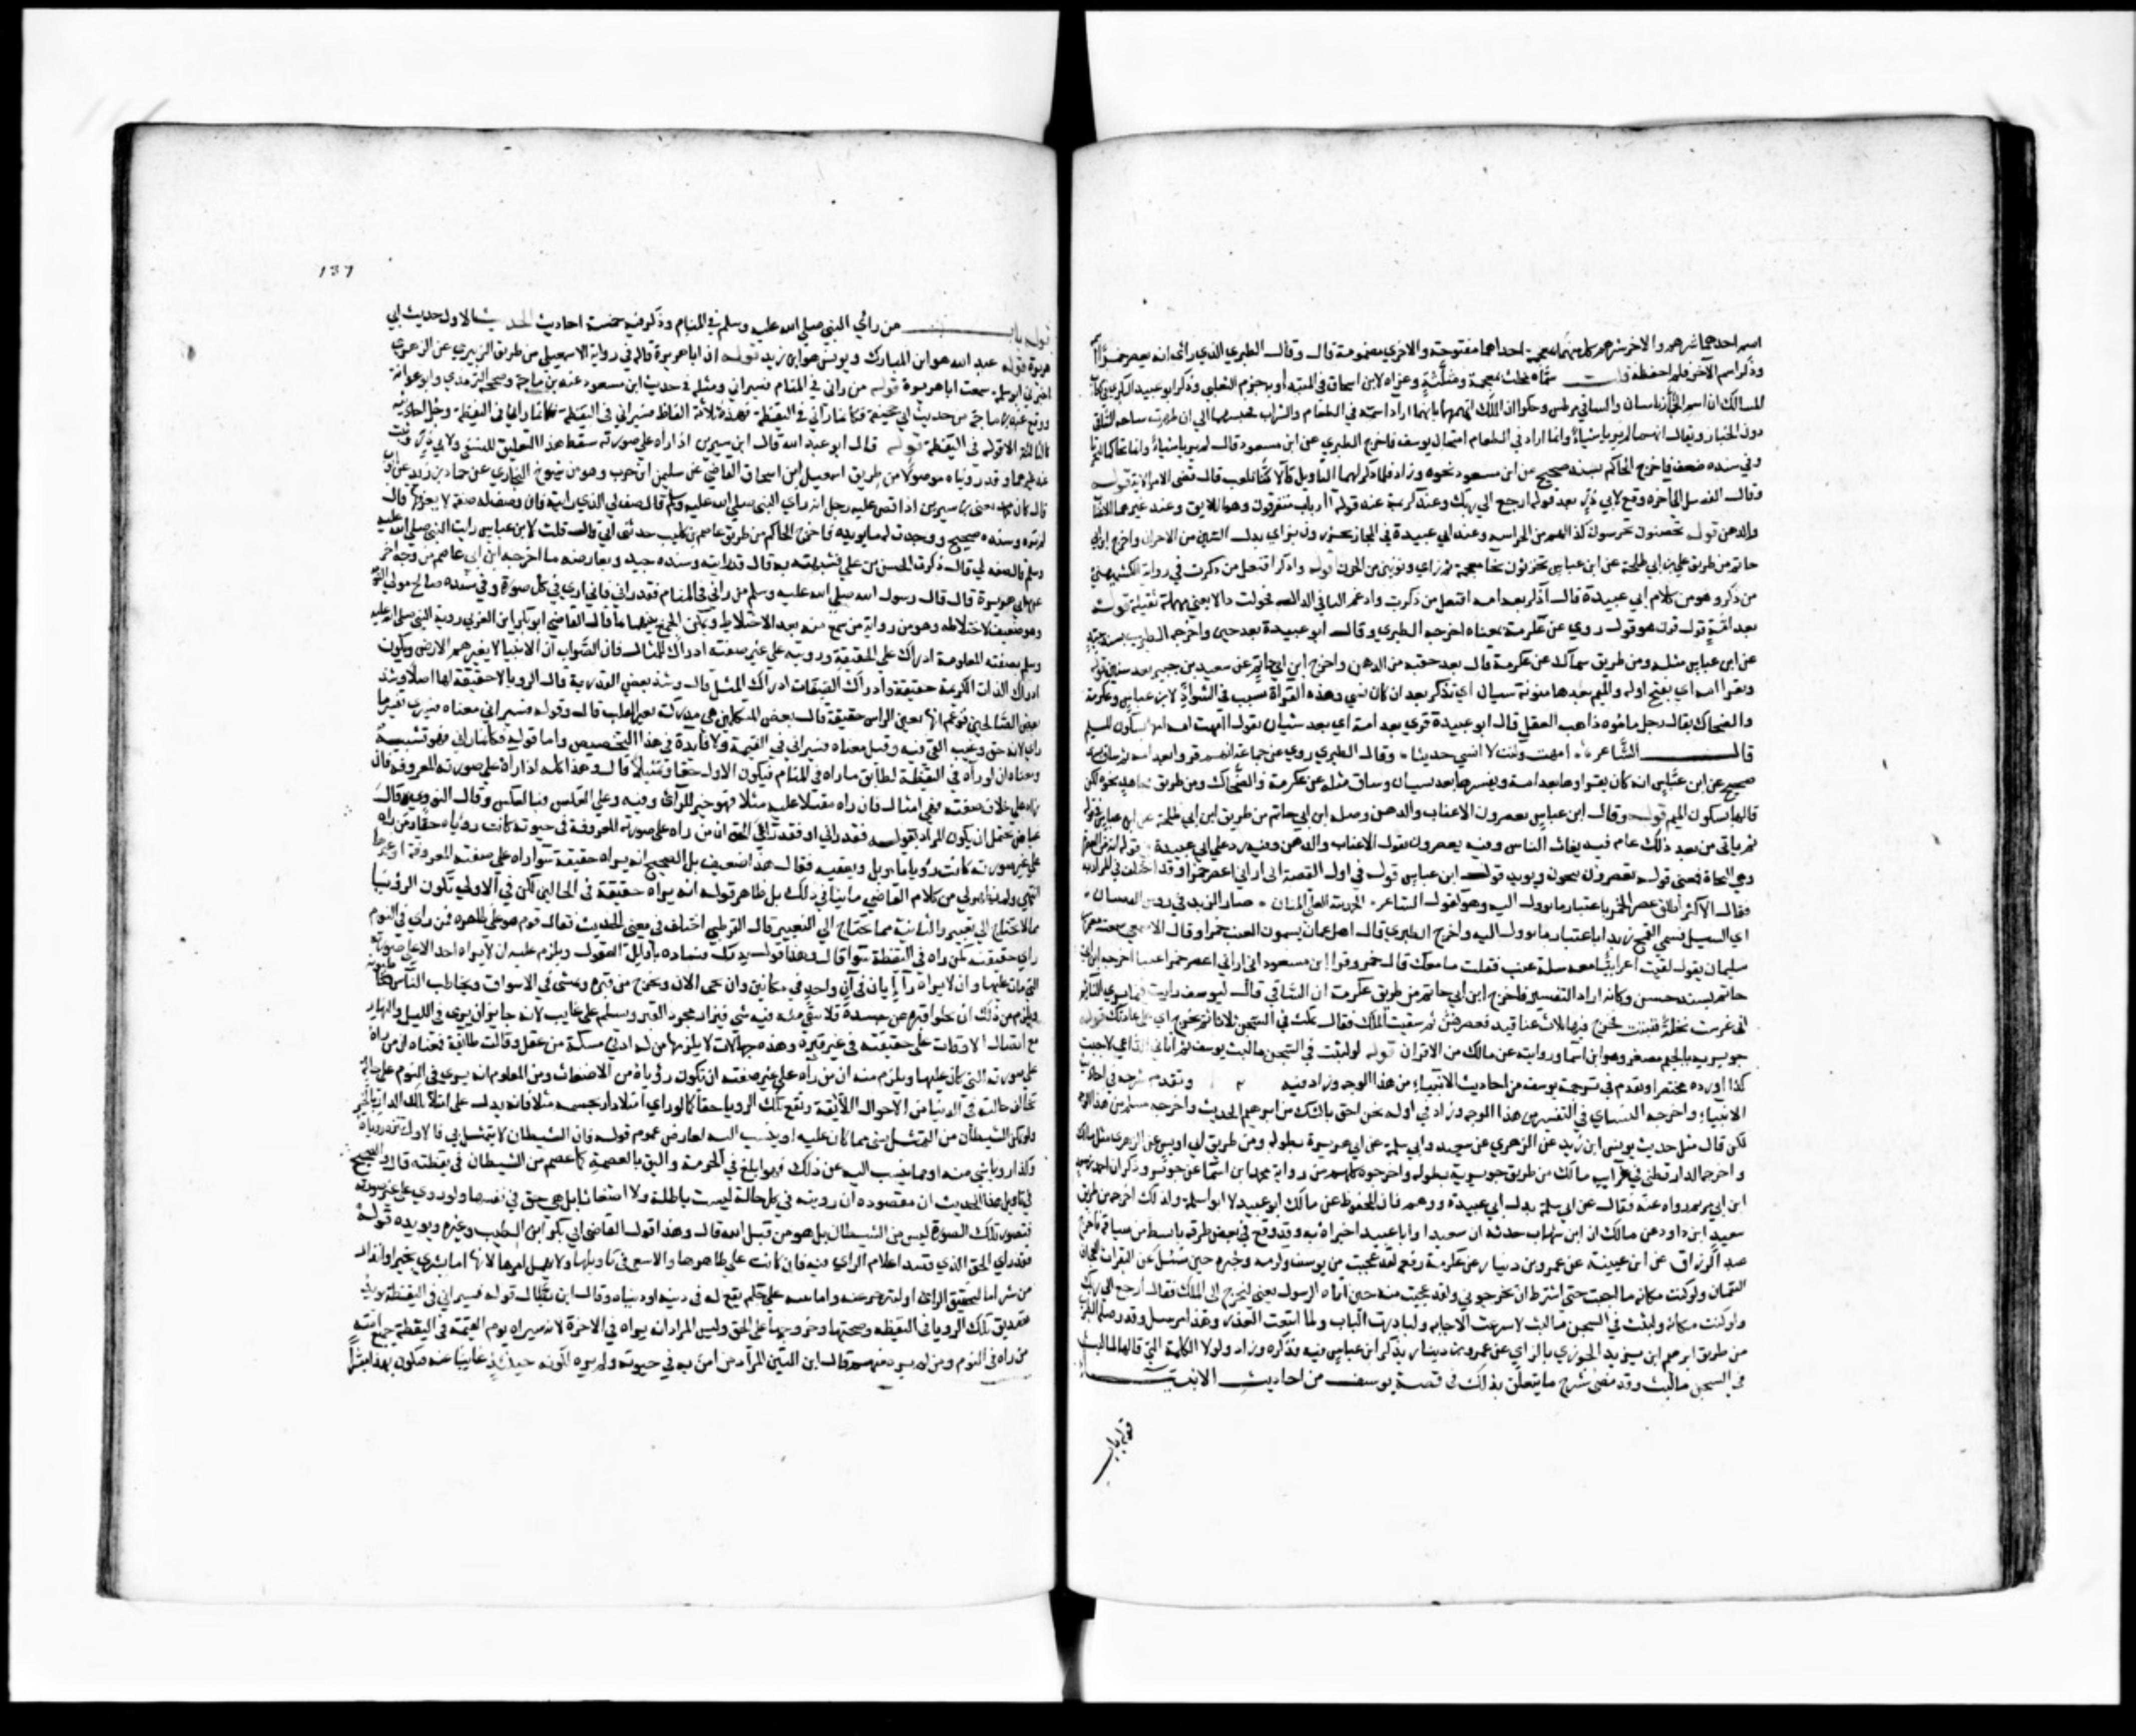 اسم احدهما شرهم والاخر شرهم كل منهما بمعجمة احداهما مفتوحة والاخري مضمومة قال وقال الطبري الذي راي انه يعصر خمرا
وذكر اسم الآخر فلم احفظه قلت سماه مخلث بمعجمة ومثلثة وعزاه لابن اسحاق في المبتدا وبه جزم الثعلبي وذكر ابو عبيد البكري في كتاب
المسالك ان اسم الخباز راسان والساقي مرطس وحكوا ان الملك اتهمهما بانهما ارادا سمه في الطعام والشراب فحبسهما الي ان ظهرت ساحة الساقي
دون الخباز ويقال انهما لم يريا شيئا وانما ارادا امتحان يوسف فاخرج الطبري عن ابن مسعود قال لم يريا شيئا وانما تحاكما ليجربا
وفي سنده ضعف فاخرج الحاكم بسند صحيح عن ابن مسعود نحوه وزاد فلما ذكر لهما التاويل قالا كنا نلعب قال قضي الامر الاية قوله
وقال الفضيل الي اخره وقع لابي ذر بعد قوله ارجع الي ربك وعند كريمة عند قوله أأرباب متفرقون وهو الاليق وعند غيرهما
والدهن قوله تحصنون تحرسون كذا لهم من الحراسة وعند ابي عبيدة في المجاز تحرزون بزاي بدل السين من الاحراز واخرج ابن ابي
حاتم من طريق علي بن ابي طلحة عن ابن عباس تخزنون بخا معجمة ثم زاي ونونين من الخزن قوله وادكر افتعل من ذكرت في رواية الكشميهني
من ذكر وهو من كلام ابي عبيدة قال ادكر بعد امه افتعل من ذكرت وادغم التا في الذال فحولت دالا يعني مهملة ثقيلة قوله
بعد امة قرن هو قول روي عن عكرمة بمعناه اخرجه الطبري وقال ابو عبيدة بعد حين واخرجه الطبري بسند جيد
عن ابن عباس مثله ومن طريق سماك عن عكرمة قال بعد حقبة من الدهر واخرج ابن ابي حاتم عن سعيد بن جبير بعد سنين قوله
ويقرا امه اي بفتح اوله والميم بعدها منونة نسيان اي تذكر بعد ان كان نسي وهذه القراة نسبت في الشواذ لابن عباس وعكرمة
والضحاك يقال رجل ماموه ذاهب العقل قال ابو عبيدة قري بعد امه اي بعد نسيان تقول امهت امه امها بسكون الميم
قال الشاعر امهت وكنت لا انسي حديثا وقال الطبري روي عن جماعة انهم قروا بعد امه
صحيح عن ابن عباس انه كان يقراها بعد امه ويفسرها بعد نسيان وساق مثله عن عكرمة والضحاك ومن طريق مجاهد نحوه لكن
قالها بسكون الميم قوله وقال ابن عباس يعصرون الاعناب والدهن وصله ابن ابي حاتم من طريق ابن ابي طلحة عن ابن عباس في قوله
ثم ياتي من بعد ذلك عام فيه يغاث الناس وفيه يعصرون يقول الاعناب والدهن وفيه رد علي ابي عبيدة في قوله انه من العصرة
وهي النجاة فمعني قوله تعصرون تنجون ويويد قول ابن عباس قوله في اول القصة اني اراني اعصر خمرا وقد اختلف في المراد به
فقال الاكثر اطلق عصر الخمر باعتبار ما يوول اليه وهو كقول الشاعر الحمد لله العلي المنان صار الثريد في روس القضبان
اي السنبل فسمي القمح ثريدا باعتبار ما يوول اليه واخرج الطبري قال اهل عمان يسمون العنب خمرا وقال الاصمعي سمعت معتمر بن
سليمان يقول لقيت اعرابيا معه سلة عنب فقلت ما معك قال خمر وقرا ابن مسعود اني اراني اعصر عنبا اخرجه ابن ابي
حاتم بسند حسن وكانه اراد التفسير فاخرج ابن ابي حاتم من طريق عكرمة ان الساقي قال ليوسف رايت فيما يري النائم
اني غرست حبلة فنبتت فخرج فيها ثلاث عناقيد فعصرتهن ثم سقيت الملك فقال تمكث في السجن ثلاثا ثم تخرج اي علي عادتك قوله
جويرية بالجيم مصغر وهو ابن اسما وروايته عن مالك من الاقران قوله لو لبثت في السجن ما لبث يوسف ثم اتاني الداعي لاجبت
كذا اورده مختصرا وتقدم في ترجمة يوسف من احاديث الانبياء من هذا الوجه وزاد فيه وتقدم شرحه في احاديث
الانبياء واخرجه النساي في التفسير من هذا الوجه وزاد في اوله نحن احق بالشك من ابرهيم الحديث واخرجه مسلم من هذا الوجه
لكن قال مثل حديث يونس ابن زيد عن الزهري عن سعيد وابي سلمة عن ابي هريرة بطوله ومن طريق ابي اويس عن الزهري مثل مالك
واخرجه الدارقطني في غرايب مالك من طريق جويرية بطوله واخرجوه كلهم من رواية عبد الله بن محمد بن اسما عن جويرية وذكر ان احمد
ابن ابي مريم رواه عنه فقال عن ابي سلمة بدل ابي عبيدة ووهم فان المحفوظ عن مالك ابو عبيد لا ابو سلمة وكذلك اخرجه من طريق
سعيد ابن داود عن مالك ان ابن شهاب حدثه ان سعيدا وابا عبيد اخبراه به وقد وقع في بعض طرقه بابسط من سياقه فاخرج
عبد الرزاق عن ابن عيينة عن عمرو بن دينار عن عكرمة رفعه لقد عجبت من يوسف وكرمه وخبره حين سئل عن البقرات العجاف
السمان ولو كنت مكانه ما اجبت حتي اشترط ان يخرجوني ولقد عجبت منه حين اتاه الرسول يعني ليخرج الي الملك فقال ارجع الي ربك
ولو كنت مكانه ولبثت في السجن ما لبث لاسرعت الاجابة ولبادرت الباب ولما ابتغيت العذر وهذا مرسل وقد وصله الطبري
من طريق ابرهيم ابن يزيد الخوزي بالزاي عن عمرو بن دينار بذكر ابن عباس فيه فذكره وزاد ولولا الكلمة التي قالها لما لبث
في السجن ما لبث وقد مضي شرح ما يتعلق بذلك في قصة يوسف من احاديث الانبياء
قوله باب
١٣٧
قوله باب من راي النبي صلي الله عليه وسلم في المنام وذكر فيه خمسة احاديث الحديث الاول حديث ابي
هريرة قوله عبد الله هو ابن المبارك ويونس هو ابن زيد قوله ان ابا هريرة قال في رواية الاسمعيلي من طريق الزبيدي عن الزهري
اخبرني ابو سلمة سمعت ابا هريرة قوله من راني في المنام فسيراني ومثله في حديث ابن مسعود عند ابن ماجة وصححه الترمذي وابو عوانة
ووقع عند ابن ماجة من حديث ابي جحيفة فكانما رآني في اليقظة فهذه ثلاثة الفاظ فسيراني في اليقظة فكانما راني في اليقظة وجل احاديثه
كالثالثة الا قوله في اليقظة قوله قال ابو عبد الله قال ابن سيرين اذا رآه علي صورته سقط هذا التعليق للنسفي ولابي ذر وثبت
عند غيرهما وقد رويناه موصولا من طريق اسمعيل ابن اسحاق القاضي عن سليمن ابن حرب وهو من شيوخ البخاري عن حماد بن زيد عن ايوب
قال كان محمد يعني ابن سيرين اذا قص عليه رجل انه راي النبي صلي الله عليه وسلم قال صف لي الذي رايته فان وصف له صفة لا يعرفها قال
لم تره وسنده صحيح ووجدت له ما يويده فاخرج الحاكم من طريق عاصم بن كليب حدثني ابي قال قلت لابن عباس رايت النبي صلي الله عليه
وسلم قال صفه لي قال ذكرت الحسن بن علي فشبهته به قال قد رايته وسنده جيد ويعارضه ما اخرجه ابن ابي عاصم من وجه اخر
عن ابي هريرة قال قال رسول الله صلي الله عليه وسلم من راني في المنام فقد راني فاني اري في كل صورة وفي سنده صالح مولي التوامة
وهو ضعيف لاختلاطه وهو من رواية من سمع منه بعد الاختلاط ويمكن الجمع بينهما بما قال القاضي ابو بكر ابن العربي روية النبي صلي الله عليه
وسلم بصفته المعلومة ادراك علي الحقيقة ورويته علي غير صفته ادراك للمثال فان الصواب ان الانبيا لا يغيرهم الارض ويكون
ادراك الذات الكريمة حقيقة وادراك الصفات ادراك المثل قال وشذ بعض القدرية قال الرويا لا حقيقة لها اصلا وشذ
بعض الصالحين فزعم انها بعيني الراس حقيقة قال بعض المتكلمين هي مدركة بعين القلب قال وقوله فسيراني معناه فسيري تفسير ما
راي لانه حق وغيب القي فيه وقيل معناه فسيراني في القيمة ولا فائدة في هذا التخصيص واما قوله فكانما راني فهو تشبيه
ومعناه ان لو رآه في اليقظة لطابق ما راه في المنام فيكون الاول حقا وتمثيلا قال وهذا كله اذا رآه علي صورته المعروفة فان
رآه علي خلاف صفته فهي امثال فان راه مقبلا عليه مثلا فهو خير للرآئي وفيه وعلي العكس فبالعكس وقال النووي قال
عياض يحتمل ان يكون المراد بقوله فقد راني او فقد راي الحق ان من راه علي صورته المعروفة في حيوته كانت روياه حقا ومن راه
علي غير صورته كانت رويا تاويل وتعقبه فقال هذا ضعيف بل الصحيح انه يراه حقيقة سوا راه علي صفته المعروفة او غيرها
انتهي ولم يظهر لي من كلام القاضي ما ينافي ذلك بل ظاهر قوله انه يراه حقيقة في الحالين لكن في الاولي تكون الرويا
مما لا يحتاج الي تعبير والثانية مما يحتاج الي التعبير قال القرطبي اختلف في معني الحديث فقال قوم هو علي ظاهره فمن راي في النوم
راي حقيقته كمن راه في اليقظة سوا قال وهذا قول يدرك فساده باوايل العقول ويلزم عليه ان لا يراه احد الا علي صورته
التي مات عليها وان لا يراه رآءيان في آن واحد في مكانين وان يحي الان ويخرج من قبره ويمشي في الاسواق ويخاطب الناس ويخاطبونه
ويلزم من ذلك ان يخلو قبره من جسده فلا يبقي منه فيه شي فيزار مجرد القبر ويسلم علي غايب لانه جايز ان يري في الليل والنهار
مع اتصال الاوقات علي حقيقته في غير قبره وهذه جهالات لا يلتزمها من له ادني مسكة من عقل وقالت طائفة معناه ان من راه
علي صورته التي كان عليها ويلزم منه ان من رآه علي غير صفته ان تكون روياه من الاضغاث ومن المعلوم انه يري في النوم علي حالة
تخالف حالته في الدنيا من الاحوال اللائقة وتقع تلك الرويا حقا كما لو راي امتلا دار بجسمه مثلا فانه يدل علي امتلا تلك الدار بالخير
ولو تمكن الشيطان من التمثل بشي مما كان عليه او ينسب اليه لعارض عموم قوله فان الشيطان لا يتمثل بي فالاولي تنزه روياه
وكذا رويا شي منه او مما ينسب اليه عن ذلك فهو ابلغ في الحرمة واليق بالعصمة كما عصم من الشيطان في يقظته قال والصحيح
في تاويل هذا الحديث ان مقصوده ان رويته في كل حالة ليست باطلة ولا اضغاثا بل هي حق في نفسها ولو روي علي غير صورته
فتصور تلك الصورة ليس من الشيطان بل هو من قبل الله قال وهذا قول القاضي ابي بكر ابن الطيب وغيره ويويده قوله
فقد راي الحق الذي قصد اعلام الراي فيه فان كانت علي ظاهرها والا سعي في تاويلها ولا يهمل امرها لانها اما بشري بخير او انذار
من شر اما ليخيف الرائي او لينزجر عنه واما لينبه علي حكم يقع له في دينه او دنياه وقال ابن بطال قوله فسيراني في اليقظة يريد
تصديق تلك الرويا في اليقظة وصحتها وخروجها علي الحق وليس المراد انه يراه في الاخرة لانه سيراه يوم القيمة في اليقظة جميع امته
من راه في النوم ومن لم يره منهم وقال ابن التين المراد من آمن به في حيوته ولم يره لكونه حينئذ غايبا عنه فيكون بهذا مبشرا